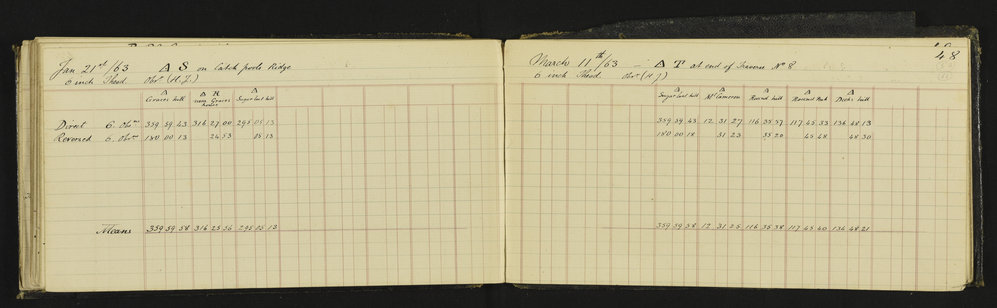 Jan 21st/63 Δ S on Catch pools Ridge
6 inch Theod. Obsr (H.J.)
Δ Δ R Δ
Graces hill near Graces house Sugar loaf hill
Direct 6. Obsns 359 59 43 316 27 00 295 05 13
Reversed 6. Obsns 180 00 13 24 53 05 13
Means 359 59 58 316 25 56 295 05 13
48
March 11th/63 Δ T at end of Traverse No 8
6 inch Theod. Obsr (H.J)
Δ Δ Δ Δ Δ
Sugar loaf hill Mt Cameron Round hill hill
359 59 43 12 31 27 116 35 57 117 45 33 136 48 13
180 00 18 31 23 35 20 45 48 48 30
359 59 58 12 31 25 116 35 38 117 45 40 136 48 21